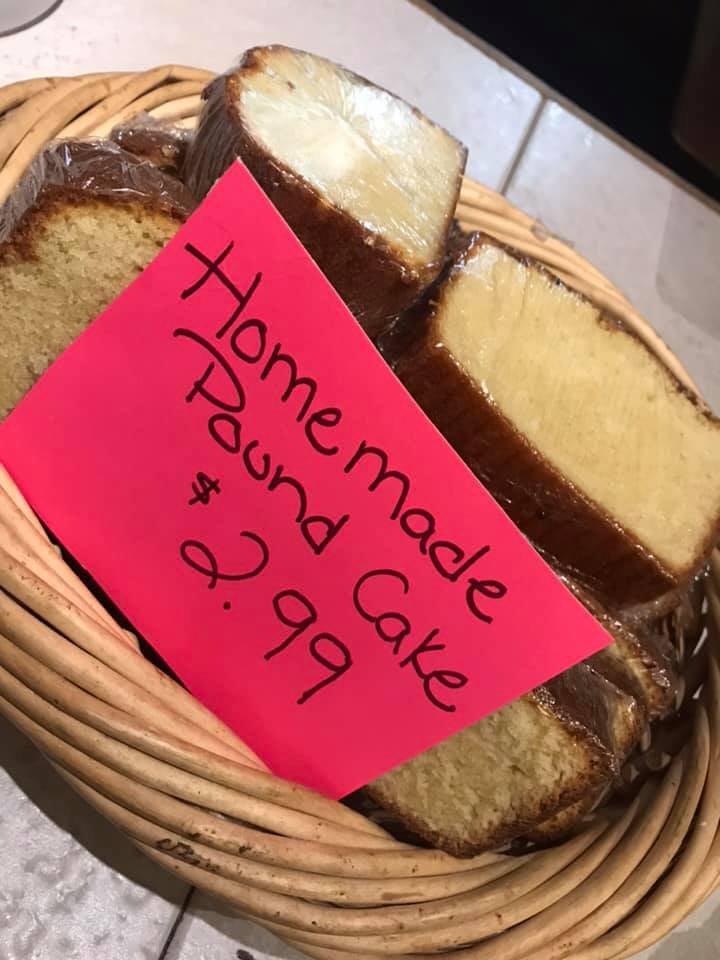 Homemade
Pound Cake
$2.99